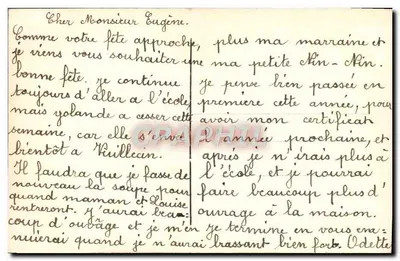 Cher Monsieur Eugène.
Comme votre fête approche,
je viens vous souhaiter une
bonne fête. je continue
toujours d'aller a l'école,
mais yolande a cesser cette
semaine, car elle s'en va
bientôt a
Il faudra que je fasse de
nouveau la soupe pour
quand maman et Louise
rentreront. J'aurai beau-
coup d'ouvrage et je m'en
nuierai quand je n'aurai
plus ma marraine et
ma petite Nin-Nin.
je pense bien passée en
première cette année, pour
avoir mon certificat
l'année prochaine, et
après je n'irais plus à
l'école, et je pourrai
faire beaucoup plus d'
ouvrage à la maison.
je termine en vous em-
brassant bien fort. Odette